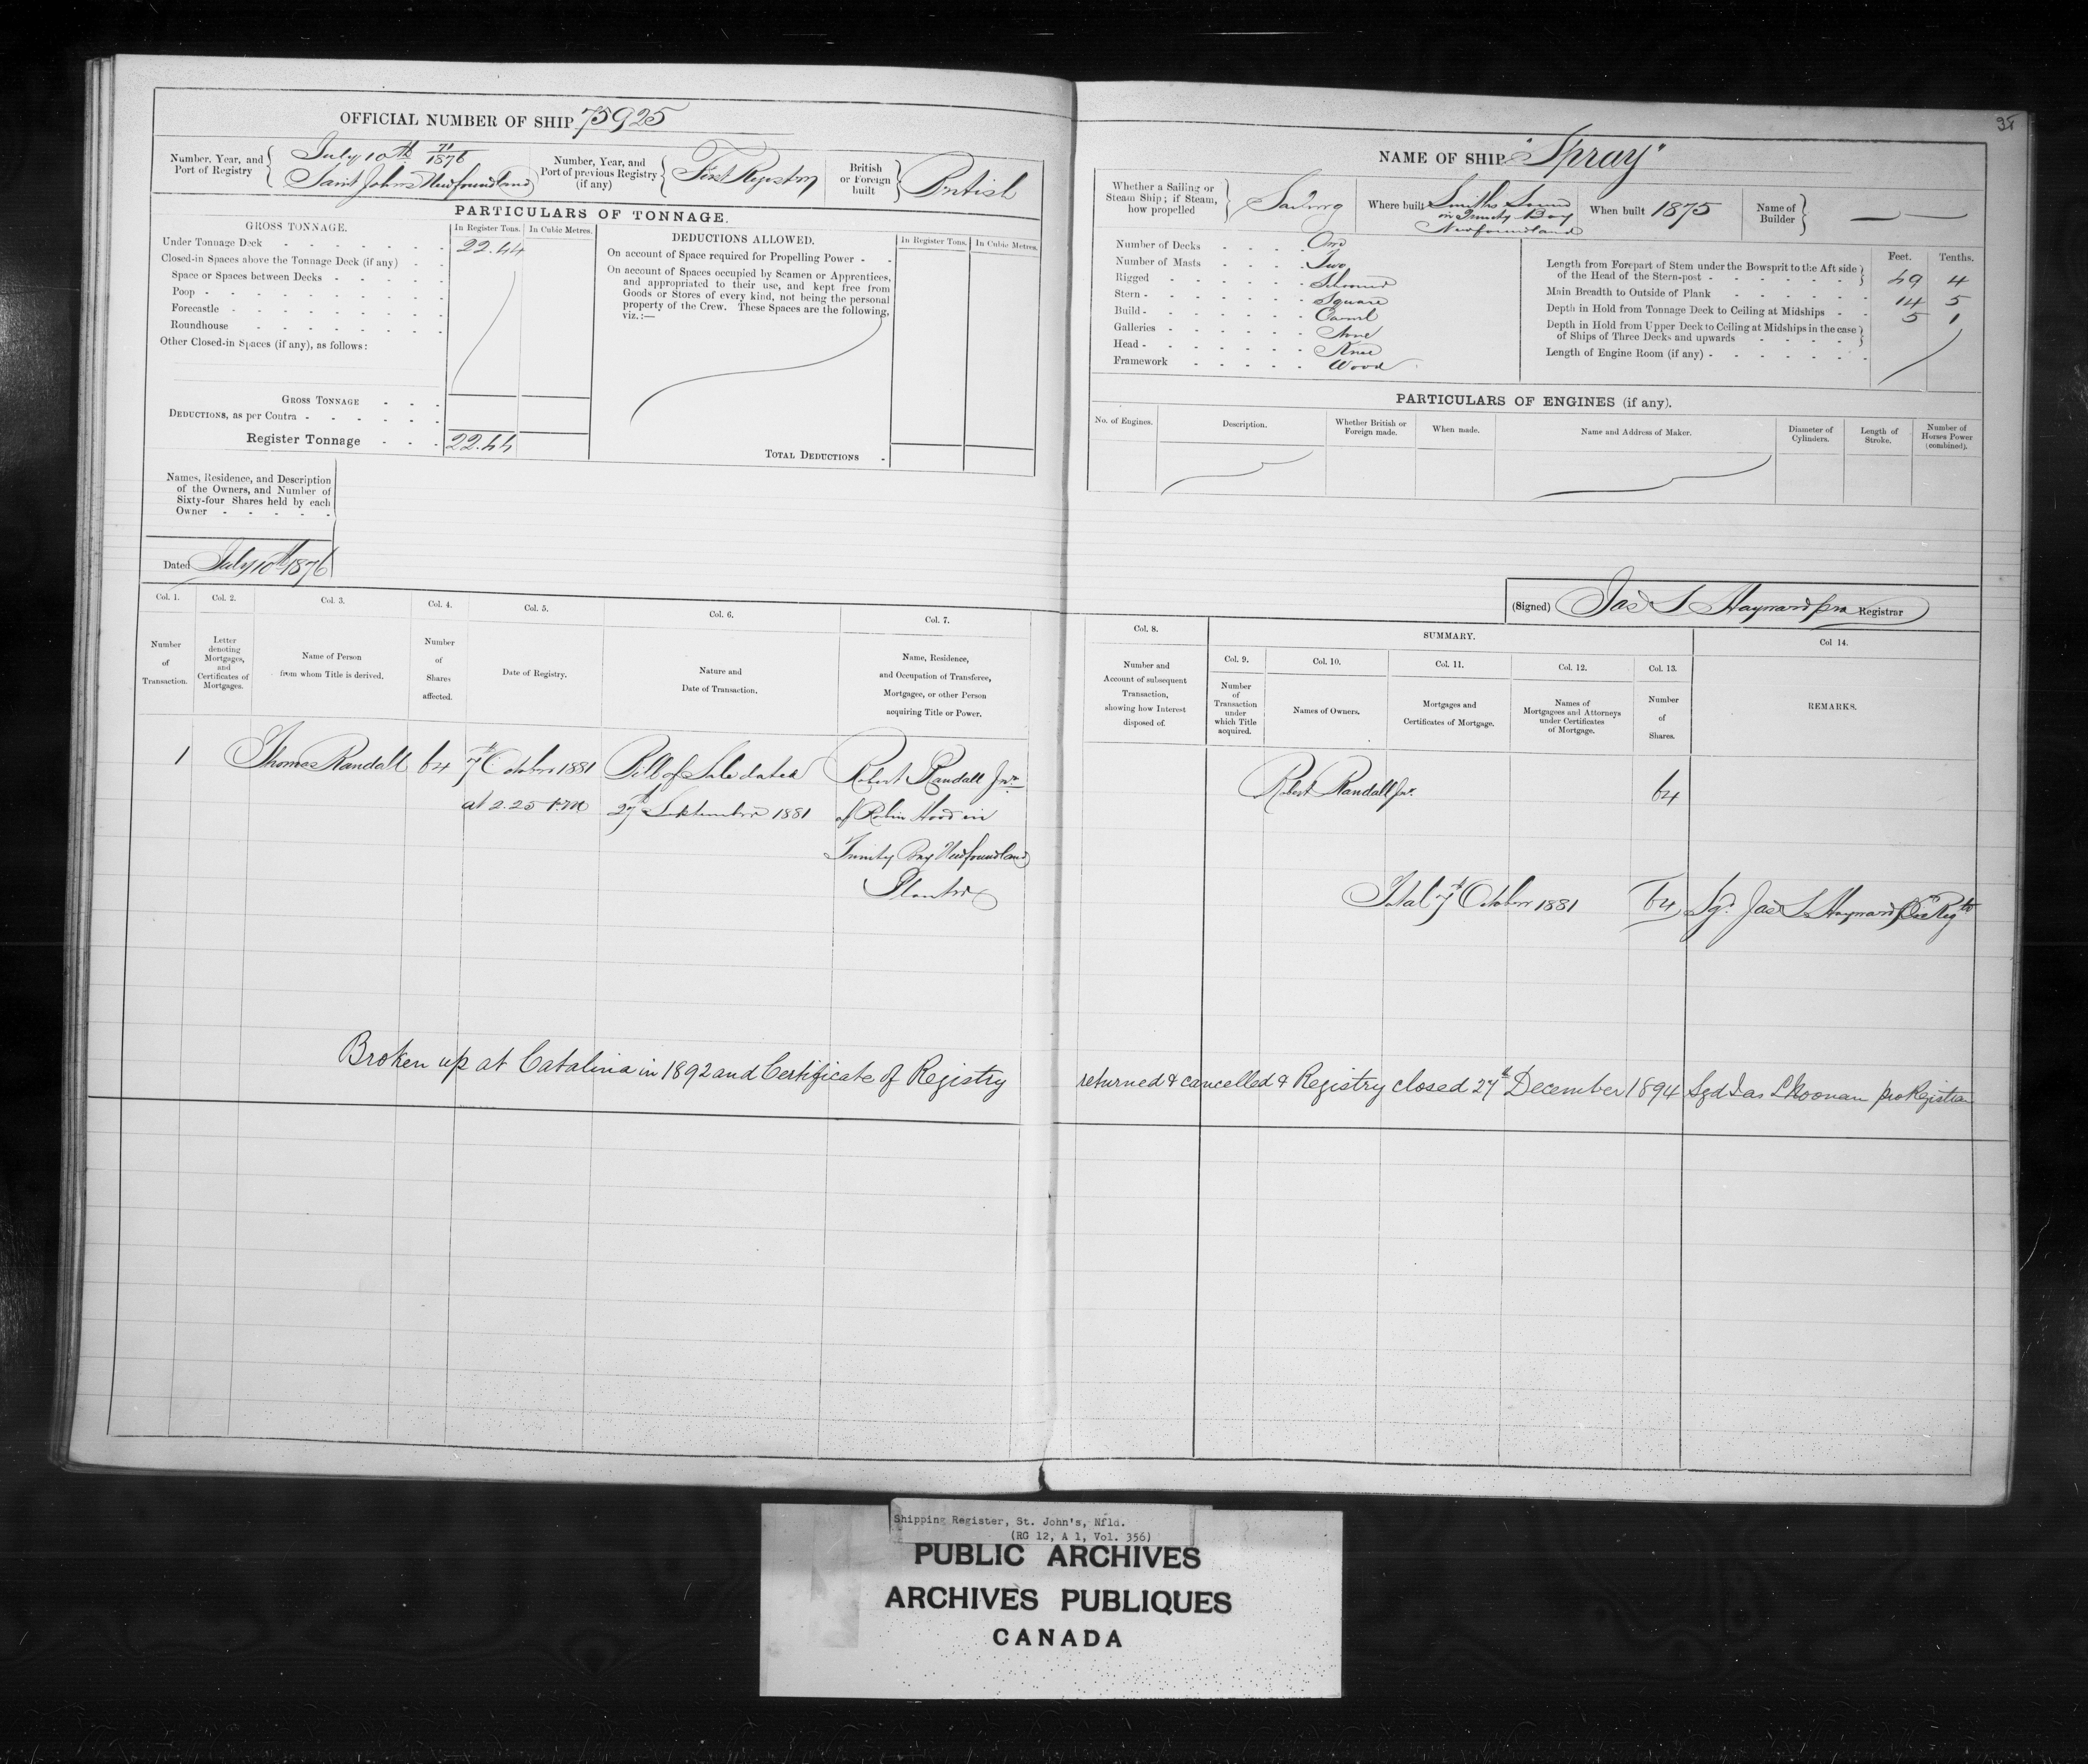 OFFICIAL NUMBER OF SHIP 75925
Number, Year, and Port of Registry
July 10th 71/1876
Saint Johns Newfoundland
Number, Year, and Port of previous Registry (if any)
First Registry
British or Foreign built
British
PARTICULARS OF TONNAGE.
GROSS TONNAGE.
In Register Tons. In Cubic Metres.
Under Tonnage Deck 22.44
Closed-in Spaces above the Tonnage Deck (if any)
Space or Spaces between Decks
Poop
Forecastle
Roundhouse
Other Closed-in Spaces (if any), as follows:
GROSS TONNAGE
DEDUCTIONS, as per Contra
Register Tonnage 22.44
DEDUCTIONS ALLOWED.
In Register Tons. In Cubic Metres.
On account of Space required for Propelling Power
On account of Spaces occupied by Seamen or Apprentices,
and appropriated to their use, and kept free from
Goods or Stores of every kind, not being the personal
property of the Crew. These Spaces are the following,
viz.:—
TOTAL DEDUCTIONS
Names, Residence, and Description
of the Owners, and Number of
Sixty-four Shares held by each
Owner
Dated July 10th 1876
Col. 1. Col. 2. Col. 3. Col. 4. Col. 5. Col. 6. Col. 7.
Number of Transaction.
Letter denoting Mortgages, and Certificates of Mortgages.
Name of Person from whom Title is derived.
Number of Shares affected.
Date of Registry.
Nature and Date of Transaction.
Name, Residence, and Occupation of Transferee, Mortgagee, or other Person acquiring Title or Power.
1 Thomas Randall 64 7th October 1881 Bill of Sale dated Robert Randall Jnr.
at 2.25 P.M 27th September 1881 of Robin Hood in
Trinity Bay Newfoundland
Planter
Broken up at Catalina in 1892 and Certificate of Registry
95
NAME OF SHIP "Spray"
Whether a Sailing or Steam Ship; if Steam, how propelled
Sailing
Where built Smiths Sound
in Trinity Bay
Newfoundland
When built 1875
Name of Builder
Number of Decks One
Number of Masts Two
Rigged Schooner
Stern Square
Build Carvel
Galleries None
Head Knee
Framework Wood
Feet. Tenths.
Length from Forepart of Stem under the Bowsprit to the Aft side
of the Head of the Stern-post 49 4
Main Breadth to Outside of Plank 14 5
Depth in Hold from Tonnage Deck to Ceiling at Midships 5 1
Depth in Hold from Upper Deck to Ceiling at Midships in the case
of Ships of Three Decks and upwards
Length of Engine Room (if any)
PARTICULARS OF ENGINES (if any).
No. of Engines.
Description.
Whether British or Foreign made.
When made.
Name and Address of Maker.
Diameter of Cylinders.
Length of Stroke.
Number of Horses Power (combined).
(Signed) Jas S Hayward pro Registrar
Col. 8.
SUMMARY.
Col 14.
Col. 9. Col. 10. Col. 11. Col. 12. Col. 13.
Number and Account of subsequent Transaction, showing how Interest disposed of.
Number of Transaction under which Title acquired.
Names of Owners.
Mortgages and Certificates of Mortgage.
Names of Mortgagees and Attorneys under Certificates of Mortgage.
Number of Shares.
REMARKS.
Robert Randall Jnr. 64
Total 7th October 1881 64 Sgd. Jas S Hayward
returned & cancelled & Registry closed 27th December 1894 Sgd Jas L Noonan pro Registrar
Shipping Register, St. John's, Nfld.
(RG 12, A 1, Vol. 356)
PUBLIC ARCHIVES
ARCHIVES PUBLIQUES
CANADA